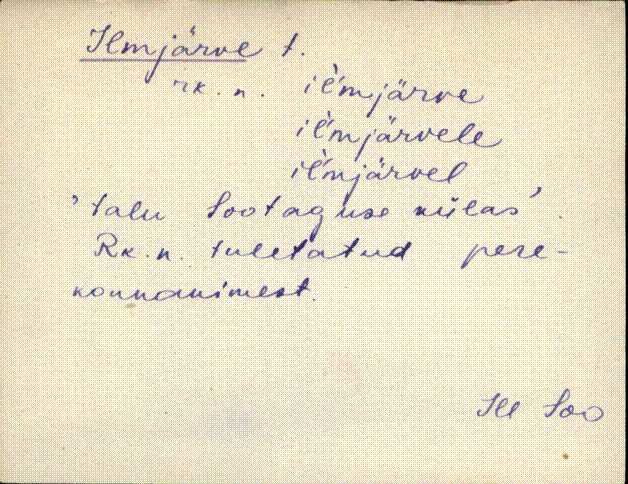 Ilmjärve t.
rk. n. ìl'mjärve
ìl'mjärvele
ìl'mjärvel
'talu Sootaguse külas'.
Rk. n. tuletatud pere-
konnanimest.
Ill Soo